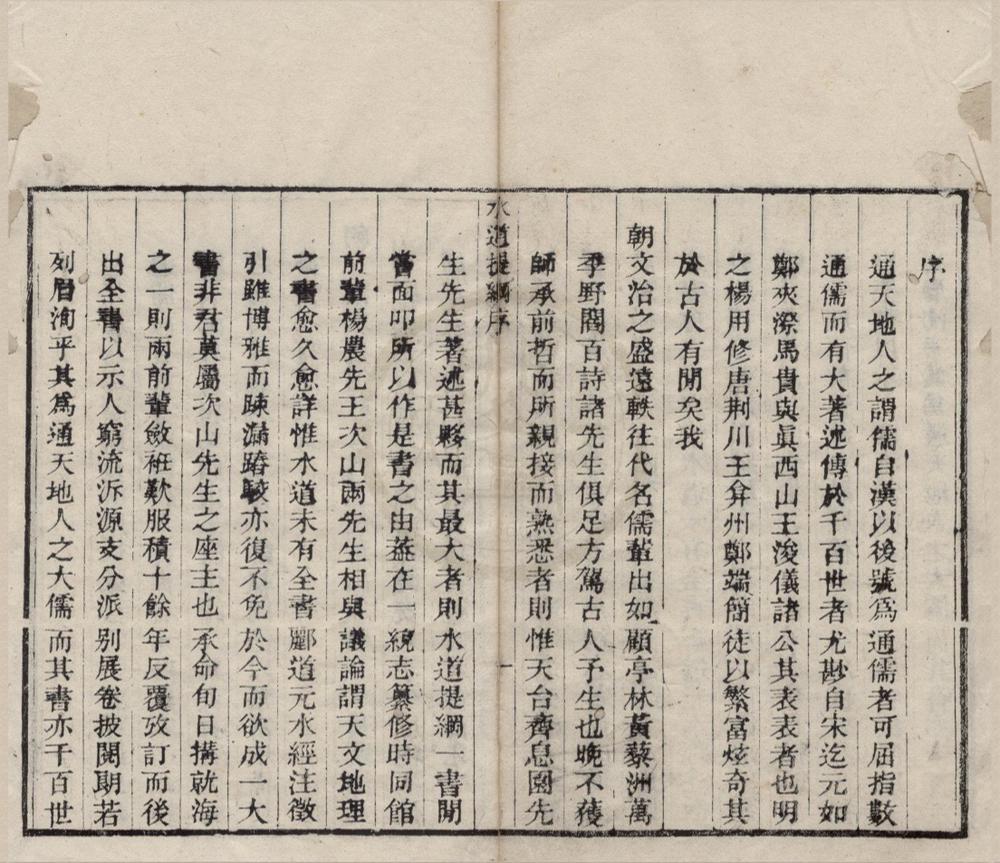 序
通天地人之謂儒自漢以後號爲通儒者可屈指數
通儒而有大著述傳於千百世者尤尠自宋迄元如
鄭夾漈馬貴與眞西山王浚儀諸公其表表者也明
之楊用修唐荆川王弇州鄭端簡徒以繁富炫奇其
於古人有閒矣我
朝文治之盛遠軼往代名儒輩出如顧亭林黃藜洲萬
季野閻百詩諸先生俱足方駕古人予生也晚不獲
師承前哲而所親接而熟悉者則惟天台齊息園先
水道提綱序
一
生先生著述甚夥而其最大者則水道提綱一書閒
嘗面叩所以作是書之由葢在一統志纂修時同館
前輩楊農先王次山兩先生相與議論謂天文地理
之書愈久愈詳惟水道未有全書酈道元水經注徵
引雖博雅而疎漏踳駮亦復不免於今而欲成一大
書非君莫屬次山先生之座主也承命旬日搆就海
之一則兩前輩斂袵歎服積十餘年反覆攷訂而後
出全書以示人窮流泝源支分派别展卷披閱朗若
列眉洵乎其爲通天地人之大儒而其書亦千百世